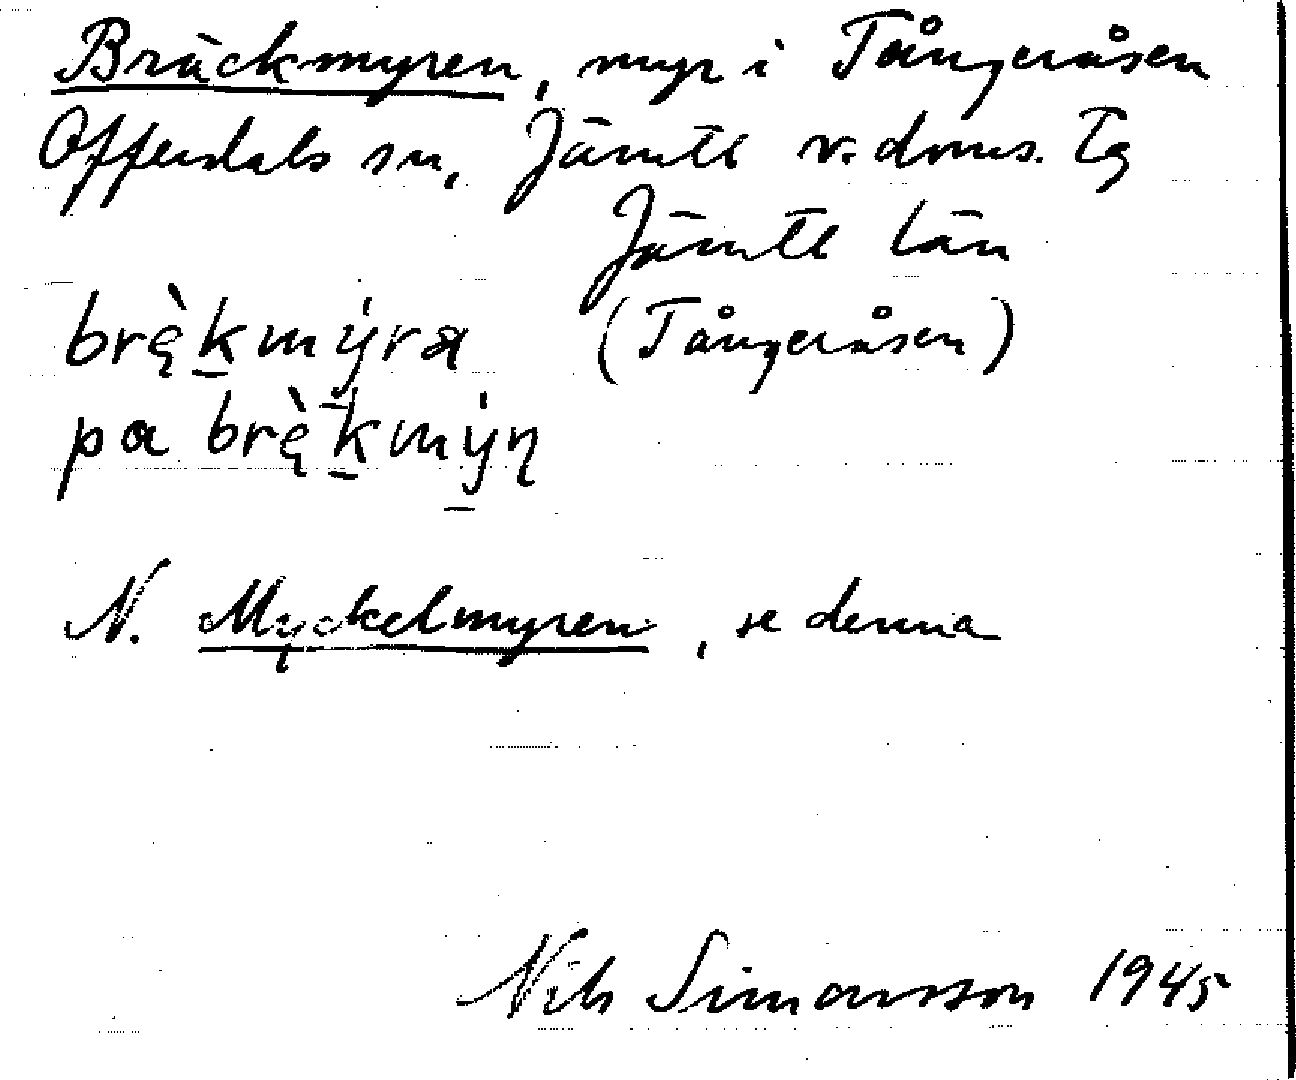 Bräckmyren, myr i Tångeråsen
Offerdals sn, Jämtl v. doms. Tg
Jämtl län
brę̀k̲mẏ̲rɐ (Tångeråsen)
pa brę̀k̲mẏ̲ɳ
N. Myckelmyren, se denna
Nils Simonsson 1945